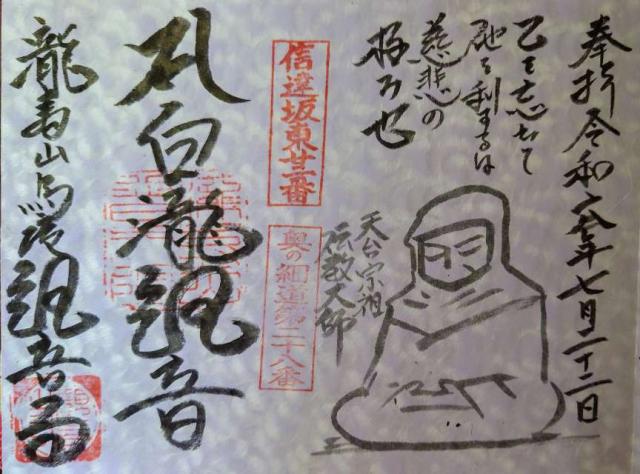 奉拝 令和六年七月二十二日
己を忘れて
他を利するは
慈悲の
極み也
天台宗祖
伝教大師
信達坂東廿三番
奥の細道第二十八番
白瀧観音
龍寿山 観音寺